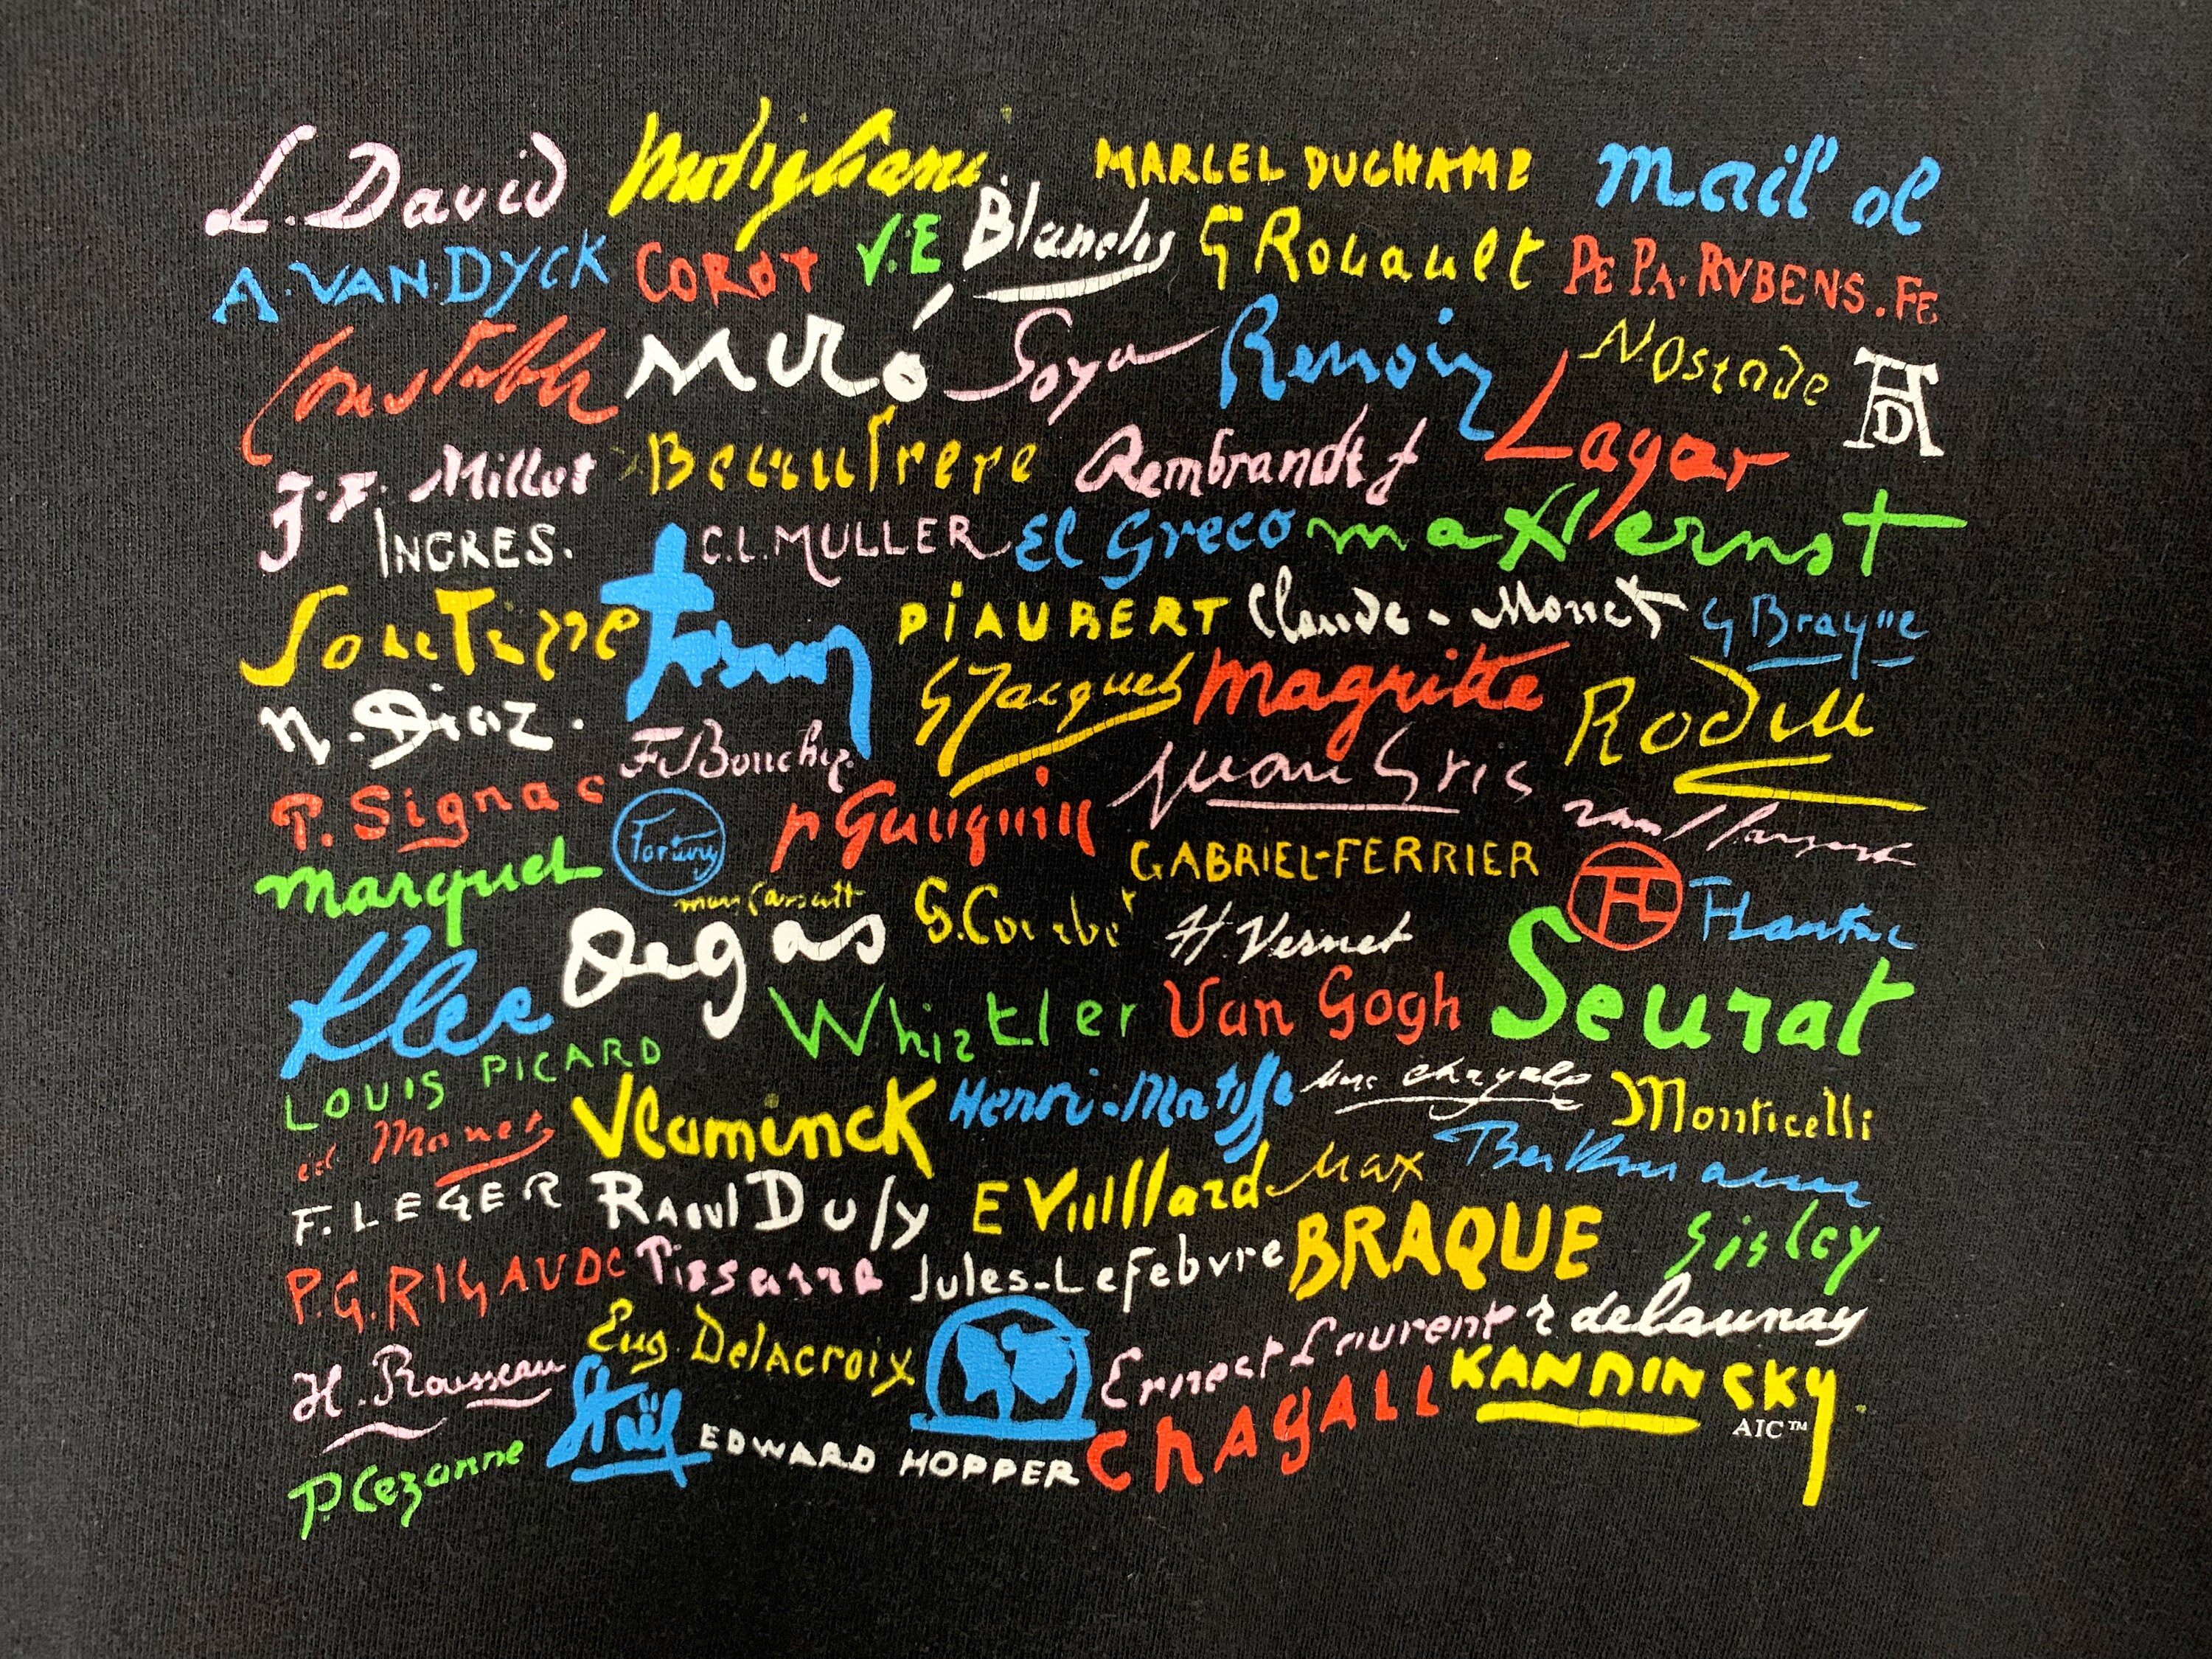 L. David Modigliani MARCEL DUCHAMP mail ol
A. VAN. DYCK COROT V.E Blanche G Rouault PE PA. RVBENS. FE
Constable Miró Goya Renoir N. Ostade AD
J. F. Millet Beaufrere Rembrandt f Lagar
INGRES. C.L. MULLER El Greco max ernst
Soutine PIAUBERT Claude. Monet G Braque
N. Diaz. F. Boucher G Jacquet Magritte Rodin
P. Signac Fortuny p Gauguin Juan Gris
marquet mary Cassatt G. Courbet GABRIEL-FERRIER HTL
Klee Degas H. Vernet Seurat
LOUIS PICARD Whistler Van Gogh
éd Manet Vlaminck Henri. Matisse Marc Chagall Monticelli
F. LEGER RAOUL DUFY E Vuillard Max Beckmann
P.G. RIGAUD Pissarro Jules-LeFebvre BRAQUE Sisley
H. Rousseau Eug. Delacroix Ernest Laurent r delaunay
P. Cezanne Staël EDWARD HOPPER CHAGALL KANDINSKY
AIC™